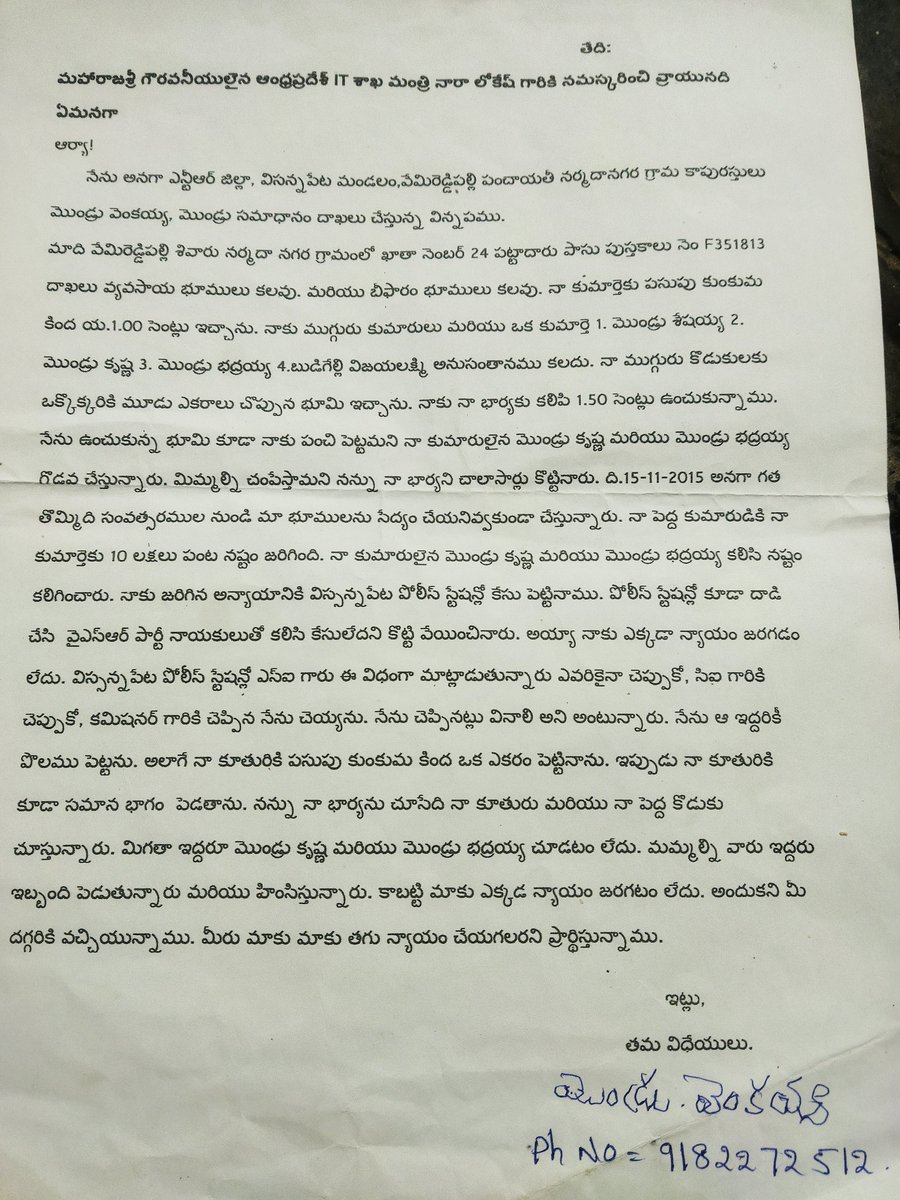 తేది:
మహారాజశ్రీ గౌరవనీయులైన ఆంధ్రప్రదేశ్ IT శాఖ మంత్రి నారా లోకేష్ గారికి నమస్కరించి వ్రాయునది
ఏమనగా
ఆర్యా!
నేను అనగా ఎన్టీఆర్ జిల్లా, విసన్నపేట మండలం,వేమిరెడ్డిపల్లి పంచాయతీ నర్మదానగర గ్రామ కాపురస్తులు
మొండ్రు వెంకయ్య, మొండ్రు సమాధానం దాఖలు చేస్తున్న విన్నపము.
మాది వేమిరెడ్డిపల్లి శివారు నర్మదా నగర గ్రామంలో ఖాతా నెంబర్ 24 పట్టాదారు పాసు పుస్తకాలు నెం F351813
దాఖలు వ్యవసాయ భూములు కలవు. మరియు బీఫారం భూములు కలవు. నా కుమార్తెకు పసుపు కుంకుమ
కింద య.1.00 సెంట్లు ఇచ్చాను. నాకు ముగ్గురు కుమారులు మరియు ఒక కుమార్తె 1. మొండ్రు శేషయ్య 2.
మొండ్రు కృష్ణ 3. మొండ్రు భద్రయ్య 4.బుడిగేల్లి విజయలక్ష్మి అనుసంతానము కలదు. నా ముగ్గురు కొడుకులకు
ఒక్కొక్కరికి మూడు ఎకరాలు చొప్పున భూమి ఇచ్చాను. నాకు నా భార్యకు కలిపి 1.50 సెంట్లు ఉంచుకున్నాము.
నేను ఉంచుకున్న భూమి కూడా నాకు పంచి పెట్టమని నా కుమారులైన మొండ్రు కృష్ణ మరియు మొండ్రు భద్రయ్య
గొడవ చేస్తున్నారు. మిమ్మల్ని చంపేస్తామని నన్ను నా భార్యని చాలాసార్లు కొట్టినారు. ది.15-11-2015 అనగా గత
తొమ్మిది సంవత్సరముల నుండి మా భూములను సేద్యం చేయనివ్వకుండా చేస్తున్నారు. నా పెద్ద కుమారుడికి నా
కుమార్తెకు 10 లక్షలు పంట నష్టం జరిగింది. నా కుమారులైన మొండ్రు కృష్ణ మరియు మొండ్రు భద్రయ్య కలిసి నష్టం
కలిగించారు. నాకు జరిగిన అన్యాయానికి విస్సన్నపేట పోలీస్ స్టేషన్లో కేసు పెట్టినాము. పోలీస్ స్టేషన్లో కూడా దాడి
చేసి వైఎస్ఆర్ పార్టీ నాయకులుతో కలిసి కేసులేదని కొట్టి వేయించినారు. అయ్యా నాకు ఎక్కడా న్యాయం జరగడం
లేదు. విస్సన్నపేట పోలీస్ స్టేషన్లో ఎస్ఐ గారు ఈ విధంగా మాట్లాడుతున్నారు ఎవరికైనా చెప్పుకో, సిఐ గారికి
చెప్పుకో, కమిషనర్ గారికి చెప్పిన నేను చెయ్యను. నేను చెప్పినట్లు వినాలి అని అంటున్నారు. నేను ఆ ఇద్దరికీ
పొలము పెట్టను. అలాగే నా కూతురికి పసుపు కుంకుమ కింద ఒక ఎకరం పెట్టినాను. ఇప్పుడు నా కూతురికి
కూడా సమాన భాగం పెడతాను. నన్ను నా భార్యను చూసేది నా కూతురు మరియు నా పెద్ద కొడుకు
చూస్తున్నారు. మిగతా ఇద్దరూ మొండ్రు కృష్ణ మరియు మొండ్రు భద్రయ్య చూడటం లేదు. మమ్మల్ని వారు ఇద్దరు
ఇబ్బంది పెడుతున్నారు మరియు హింసిస్తున్నారు. కాబట్టి మాకు ఎక్కడ న్యాయం జరగటం లేదు. అందుకని మీ
దగ్గరికి వచ్చియున్నాము. మీరు మాకు మాకు తగు న్యాయం చేయగలరని ప్రార్థిస్తున్నాము.
ఇట్లు,
తమ విధేయులు.
మొండ్రు. వెంకయ్య
Ph No = 9182272512.